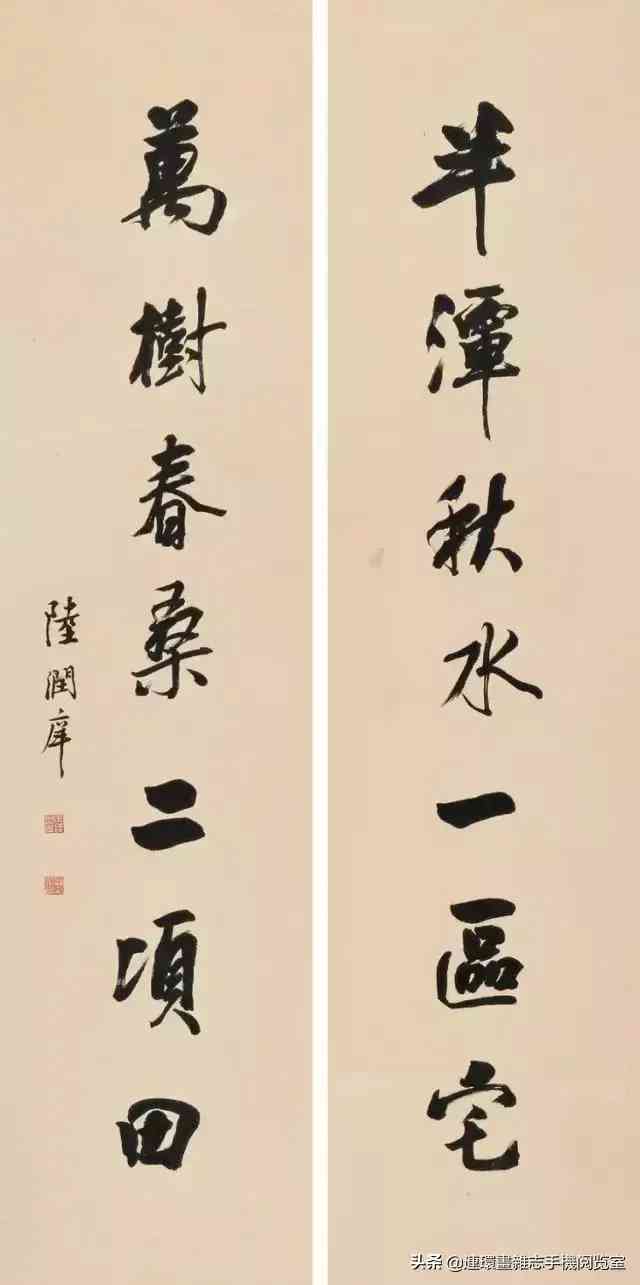 半潭秋水一區宅
萬樹春桑二頃田
陸潤庠
头条 @連環畫雜志手機阅览室